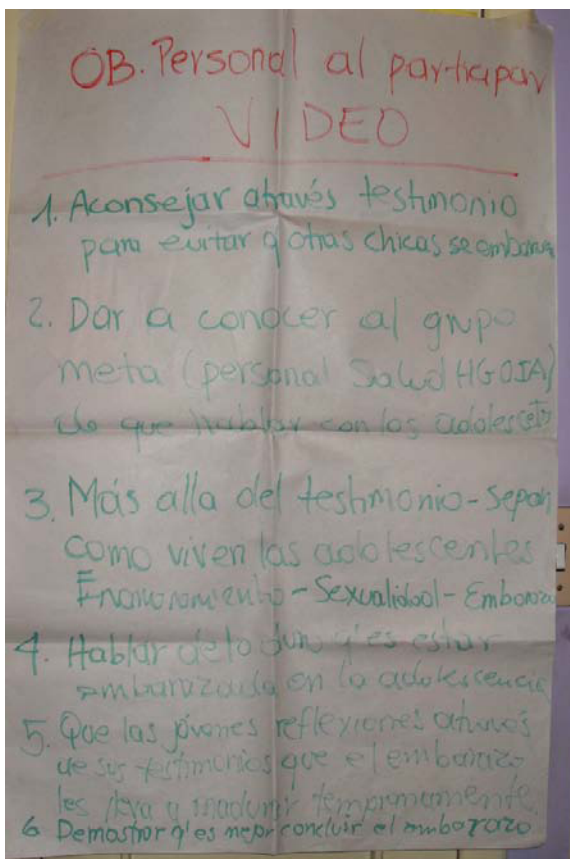 OB. Personal al participar
VIDEO
1. Aconsejar através testimonio
para evitar q otras chicas se embaraza
2. Dar a conocer al grupo
meta (personal Salud HGOIA)
lo que hablar con los adolescets
3. Más alla del testimonio - sepan
como viven las adolescentes
Enamoramiento - Sexualidad - Embaraza
4. Hablar de lo duro q'es estar
embarazada en la adolescencia
5. Que las jóvenes reflexiones através
de sus testimonios que el embarazo
les lleva a madurar tempranamente.
6 Demostrar q'es mejor concluir el embarazo